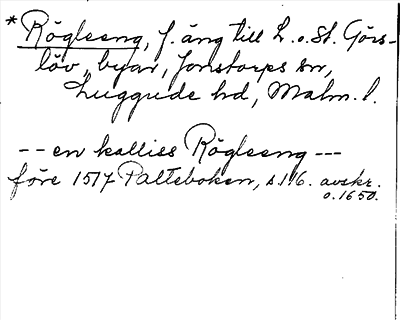 * Rögleeng, f. äng till L. o. St. Görs-
löv, byar, Jonstorps sn,
Luggude hd, Malm. l.
-- en kalliss Rögleeng ---
före 1517 Palteboken, s. 116. avskr.
o. 1650.